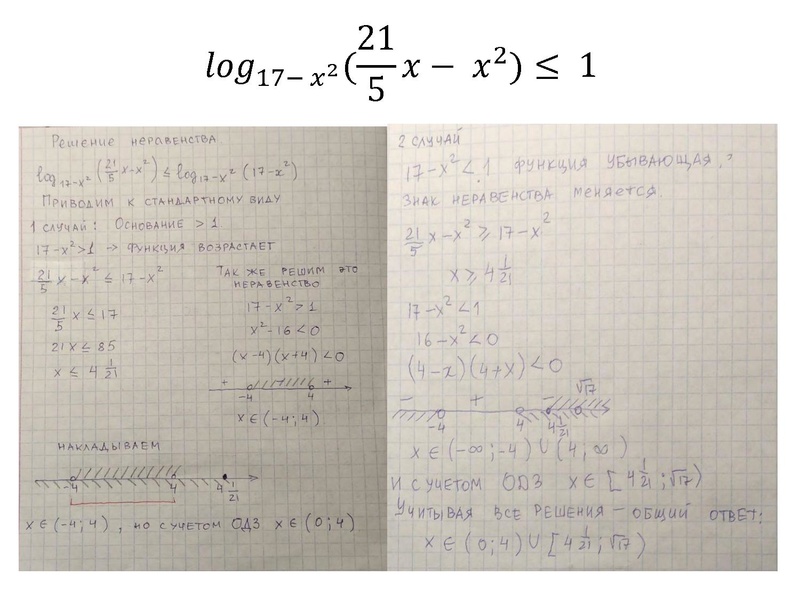 log_{17-x²}(21/5 x - x²) ≤ 1
Решение неравенства
log_{17-x²}(21/5 x-x²) ≤ log_{17-x²}(17-x²)
Приводим к стандартному виду
1 случай: Основание > 1
17-x²>1 → функция возрастает
21/5 x - x² ≤ 17-x²
21/5 x ≤ 17
21x ≤ 85
x ≤ 4 1/21
Так же решим это
неравенство
17-x²>1
x²-16<0
(x-4)(x+4)<0
+ - +
-4 4
x ∈ (-4; 4)
накладываем
-4 4 4 1/21
x ∈ (-4; 4), но с учетом ОДЗ x ∈ (0; 4)
2 случай
17-x²<1 функция убывающая,
знак неравенства меняется.
21/5 x-x² ≥ 17-x²
x ≥ 4 1/21
17-x²<1
16-x²<0
(4-x)(4+x)<0
- + - √17
-4 4 4 1/21
x ∈ (-∞; -4) ∪ (4; ∞)
и с учетом ОДЗ x ∈ [4 1/21; √17)
Учитывая все решения - общий ответ:
x ∈ (0; 4) ∪ [4 1/21; √17)